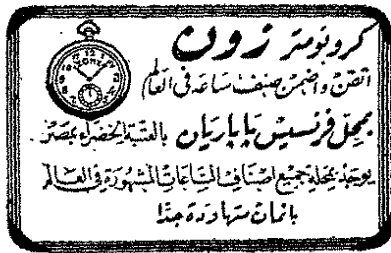 كرونومتر زون
اتقن واضمن صنف ساعة في العالم
بمحل فرنسيس باباريان بالعتبة الخضراء بمصر
يوجد بمحله جميع اصناف الساعات المشهورة في العالم
باثمان متهاودة جدا